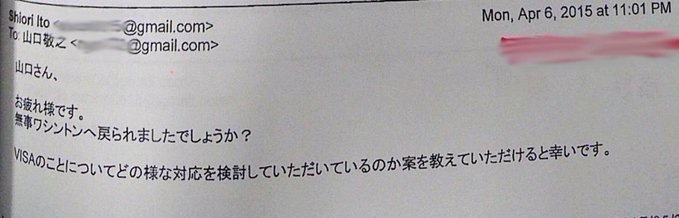 Shiori Ito < @gmail.com>
Mon, Apr 6, 2015 at 11:01 PM
To: 山口敬之 < @gmail.com>
山口さん、
お疲れ様です。
無事ワシントンへ戻られましたでしょうか？
VISAのことについてどの様な対応を検討していただいているのか案を教えていただけると幸いです。